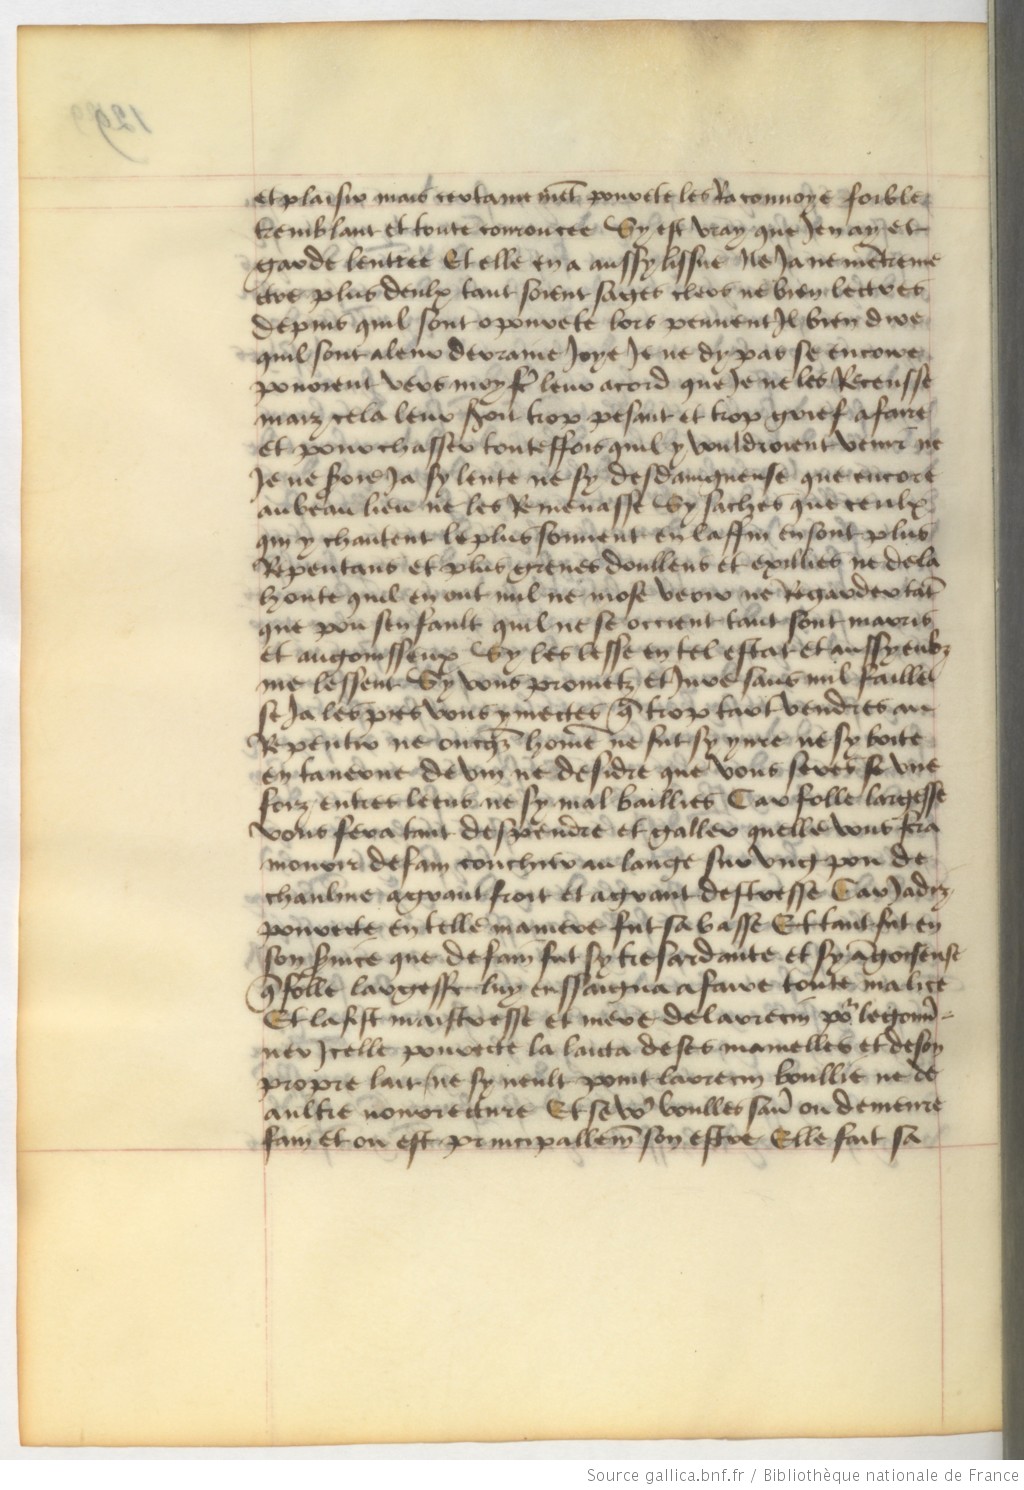 et plaisir mais certainemēt pourete les Raconuoye foible
tremblant et toute comoucee Sy est vray que Jen ay et
garde lentree Et elle en a aussy lissue Ne Ja ne mētreme
ttre plus deulx tant soient sages clers ne bien lectres
depuis quil sont a pourete lors peuuent Il bien dire
quil sont a leur derraine Joye Je ne dy pas se encore
pouoient vers moy fē leur acord que Je ne les Receusse
maiz cela leur trop pesant et trop grief a faire
et pourchasser touteffois quil y vouldroient venir ne
Je ne Ja sy lente ne sy desdaigneuse que encore
au beau lieu ne les Remenasse Sy saches que ceulx
qui y chantent le plus souuent en laffin en sont plus
Repentans et plus greues doullens et exillies ne de la
honte quil en ont nul ne mose veoir ne Regarder tāt
que pou sen fault quil ne se occient tant sont marris
et angoisseux Sy les lesse en tel estat et aussy eulz
me lessent Sy vous prometz et Jure sans nul faille
se Ja les pies vous y mectes q̄ trop tart vendres au
Repentir ne oncq̄z home ne fut sy yure ne sy boite
en tauerne de vin ne de sidre que vous seres se vne
foiz entres leens ne sy mal baillies Car folle largesse
vous fera tant despendre et galler quelle vous fera
mourir de fain couchier au lange sur vng pou de
chaulme a grant froit et a grant destresse Car Jadiz
pourete en telle maniere fut sa basse Et tant fut en
son que de fain fut sy tresardante et sy āgoisseuse
q̄ folle largesse luy enssaigna a faire toute malice
Et la fist maistresse et mere de larrecin
ner Icelle pourete la laita de ses mamelles et de son
propre lait ne sy neult point larrecin boullie ne de
aultre nourreture Et se voulles sau ou demeure
fain et ou est principallemēt son estre Elle fait sa
Source gallica.bnf.fr / Bibliothèque nationale de France